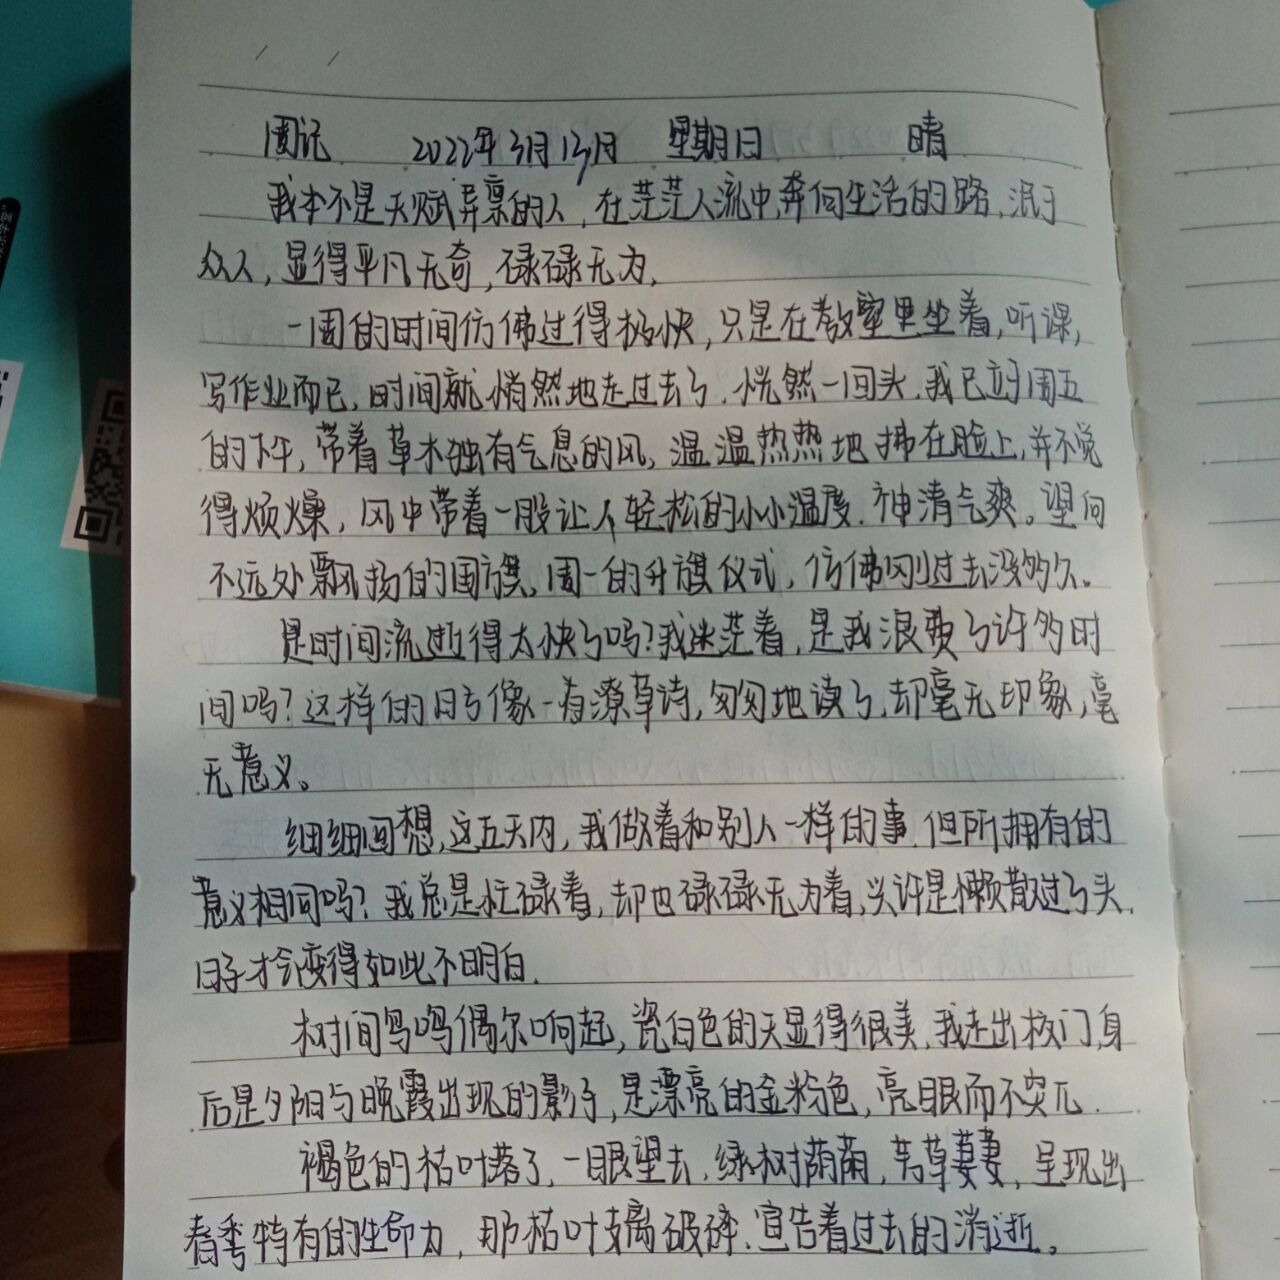 周记 2022年3月13日 星期日 晴
我本不是天赋异禀的人，在茫茫人流中，奔向生活的路，混于
众人，显得平凡无奇，碌碌无为，
一周的时间仿佛过得极快，只是在教室里坐着，听课，
写作业而已，时间就悄然地走过去了．恍然一回头，我已立于周五
的下午，带着草木独有气息的风，温温热热地拂在脸上，并不觉
得烦燥，风中带着一股让人轻松的小小温度．神清气爽。望向
不远处飘扬的国旗，周一的升旗仪式，仿佛刚过去没多久。
是时间流逝得太快了吗？我迷茫着，是我浪费了许多时
间吗？这样的日子像一首潦草诗，匆匆地读了，却毫无印象，毫
无意义。
细细回想，这五天内，我做着和别人一样的事．但所拥有的
意义相同吗？我总是忙碌着，却也碌碌无为着，兴许是懒散过了头．
日子才会变得如此不明白．
树间鸟鸣偶尔响起，瓷白色的天显得很美．我走出校门，身
后是夕阳与晚霞出现的影子，是漂亮的金粉色，亮眼而不突兀．
褐色的枯叶落了，一眼望去，绿树荫荫，芳草萋萋，呈现出
春季特有的生命力，那枯叶支离破碎．宣告着过去的消逝。